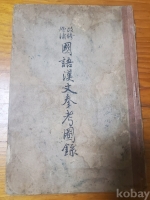 國語漢文參考圖錄
kobay